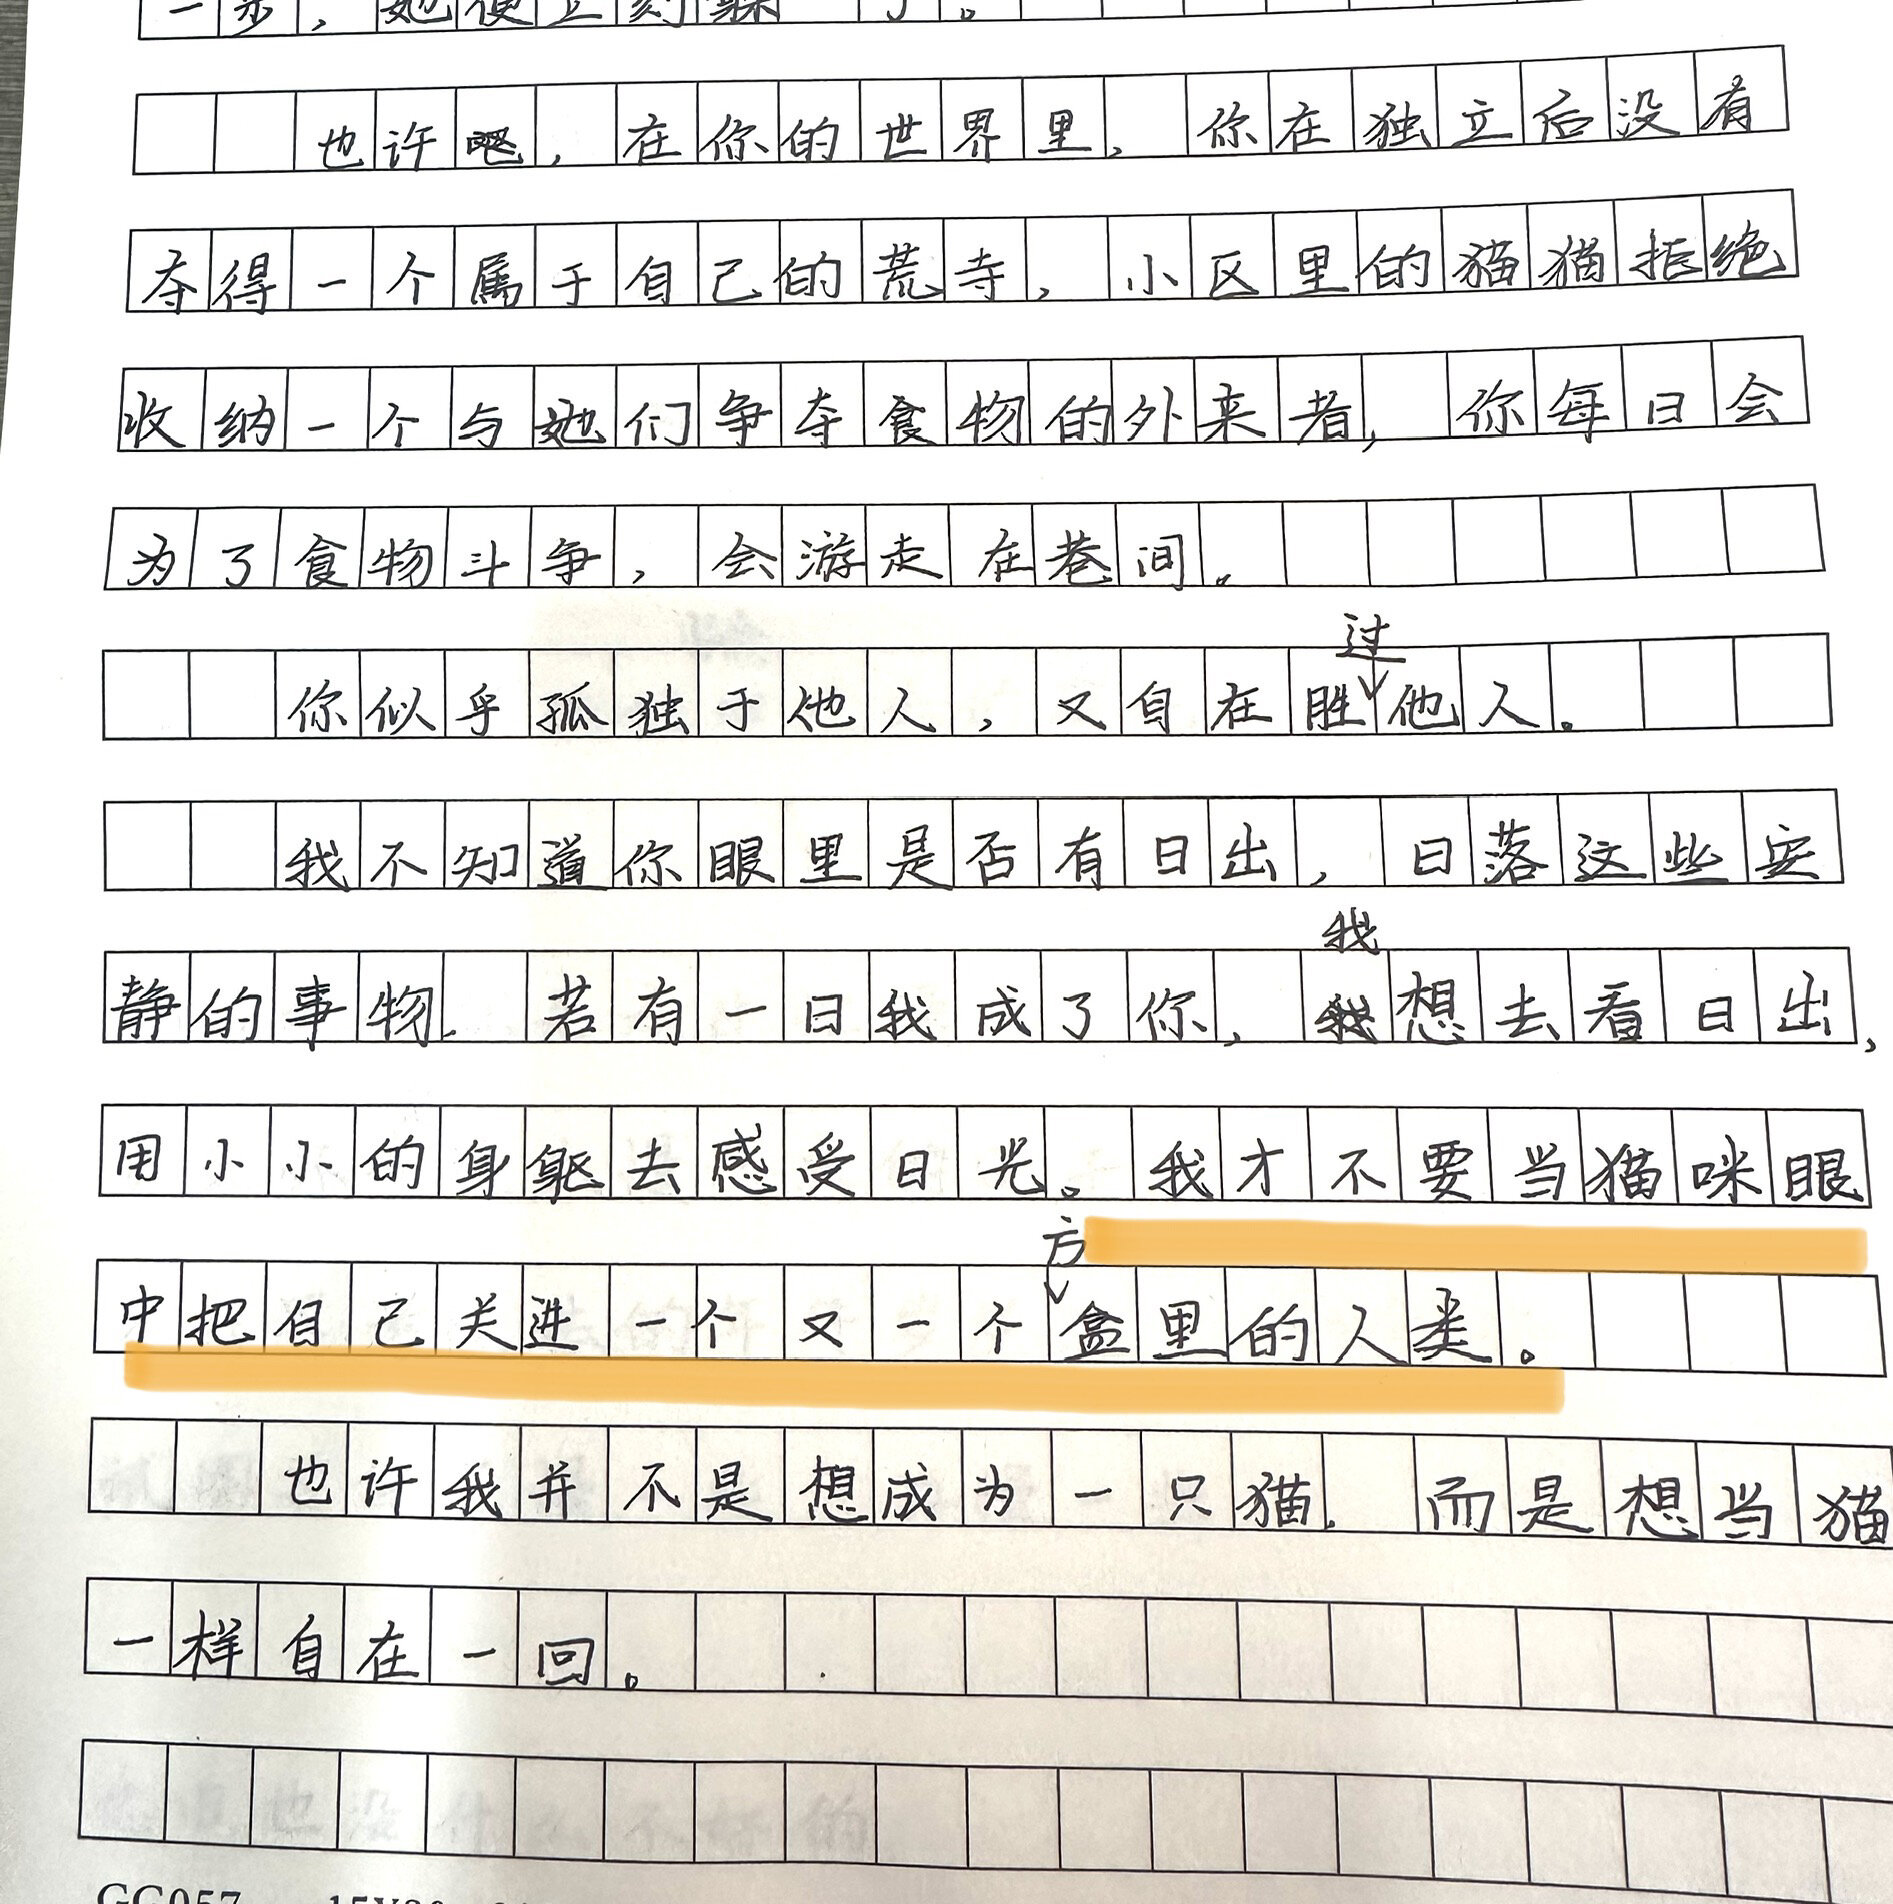 一步，她便立刻躲 了。
也许吧，在你的世界里，你在独立后没有
夺得一个属于自己的荒寺，小区里的猫猫拒绝
收纳一个与她们争夺食物的外来者，你每日会
为了食物斗争，会游走在巷间。
你似乎孤独于他人，又自在胜过他人。
我不知道你眼里是否有日出，日落这些安
静的事物．若有一日我成了你，我想去看日出，
用小小的身躯去感受日光。我才不要当猫咪眼
中把自己关进一个又一个方盒里的人类。
也许我并不是想成为一只猫．而是想当猫
一样自在一回。
GG057